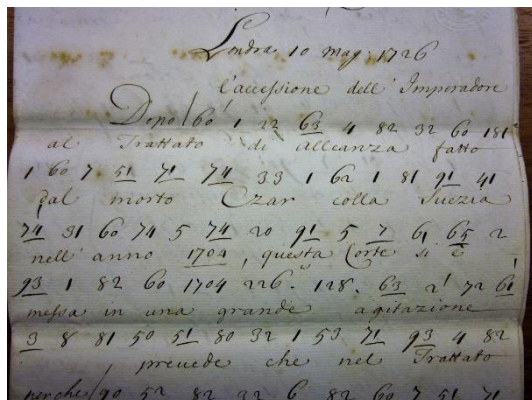 Londra 10 Mag: 1726
l'accessione dell' Imperadore
Dopo / 60 1 22 63 4 82 32 60 181
al Trattato di alleanza fatto
1 60 7 51 71 74 33 1 62 1 81 91 41
dal morto Czar colla Suezia
74 31 60 74 5 74 20 91 5 7 61 65 2
nell' anno 1704, questa Corte si è
93 1 82 60 1704 226. 128. 63 2' 72 61
messa in una grande agitazione
3 8 81 50 51 80 32 1 53 71 93 4 82
prevede che nel Trattato
perche / 90 52 82 32 6 82 60 7 51 71